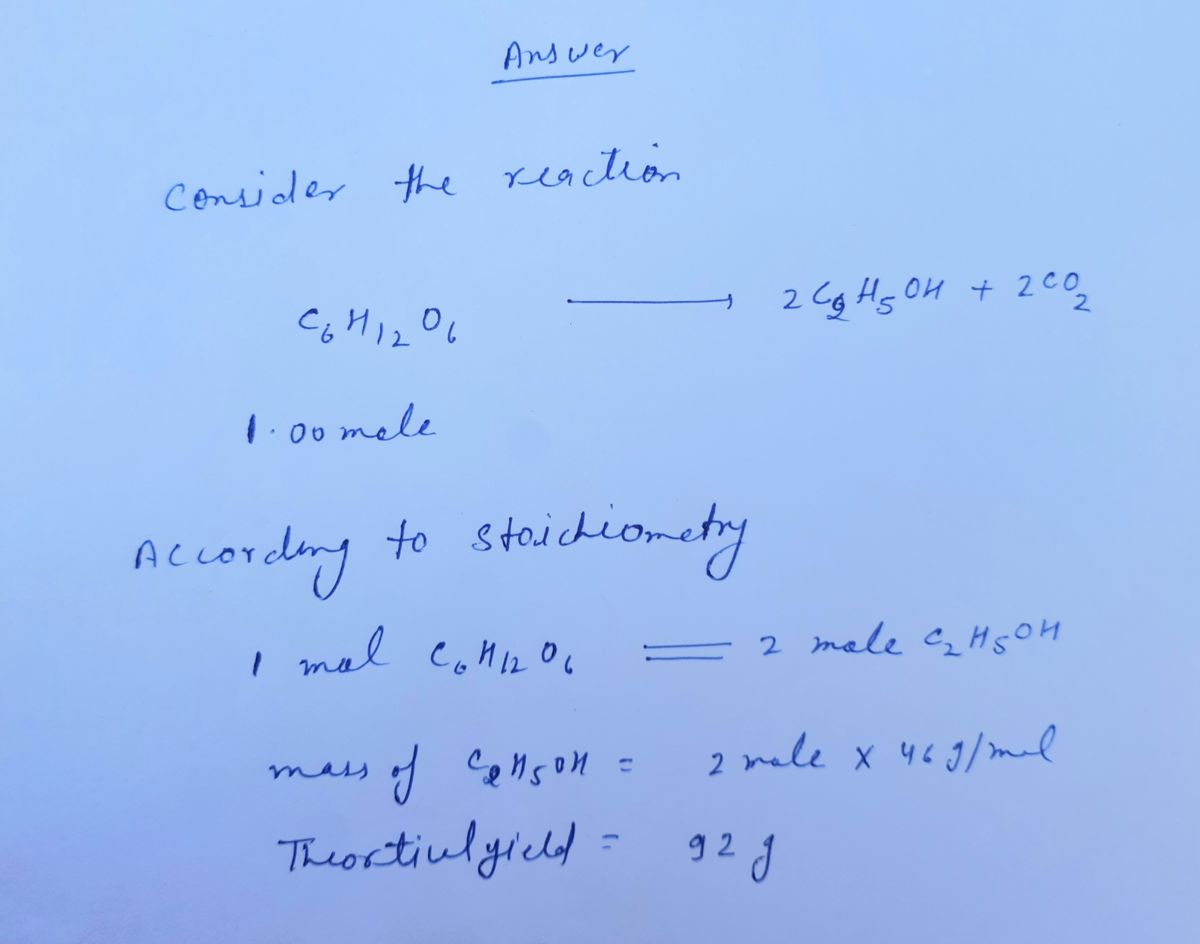 Answer
Consider the reaction
C6H12O6 → 2C2H5OH + 2CO2
1.00 mole
According to stoichiometry
1 mol C6H12O6 = 2 mole C2H5OH
mass of C2H5OH = 2 mole x 46 g/mol
Theortical yield = 92 g